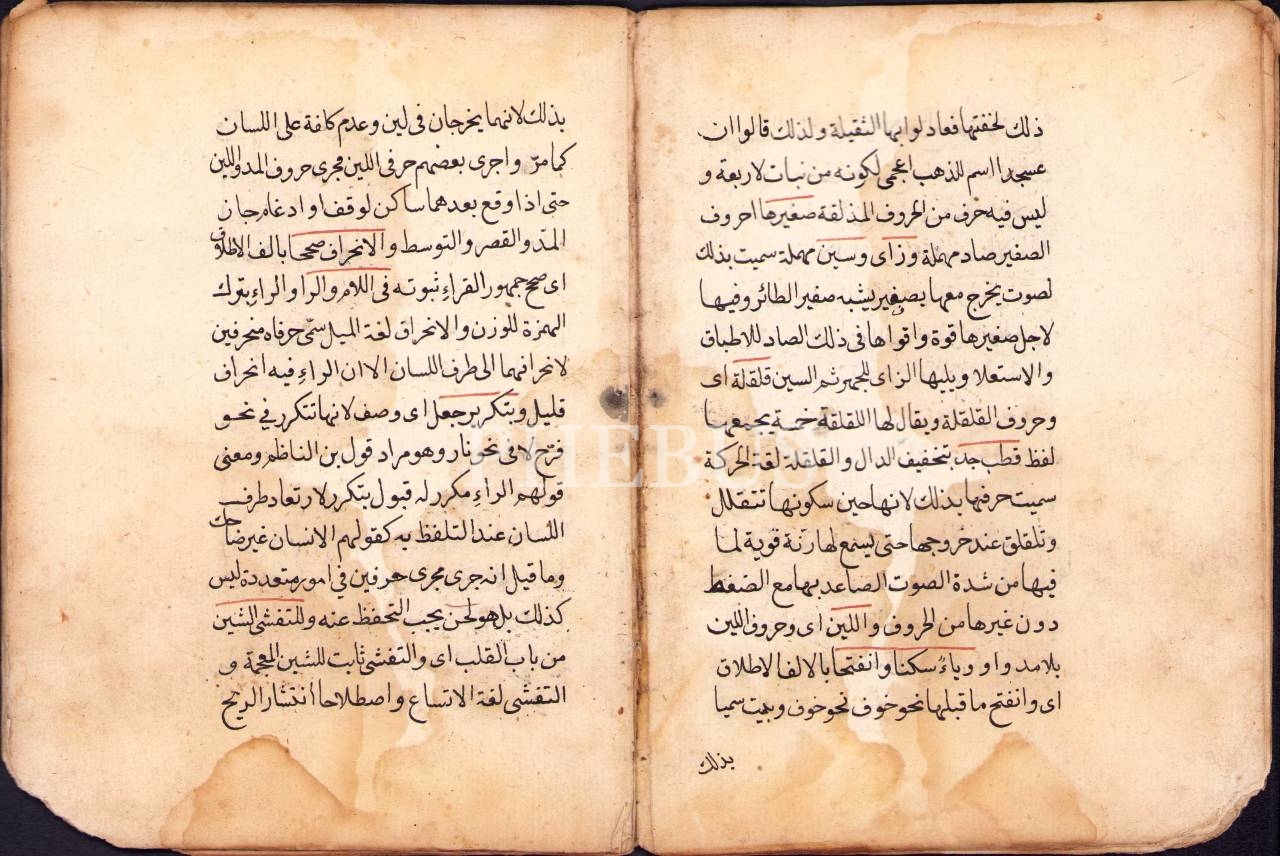 ذلك لخفتها فعادلوا بها الثقيلة ولذلك قالوا ان
عسجدا اسم للذهب اعجمى لكونه من نبات لاربعة و
ليس فيه حرف من الحروف المذلقة صغيرها احروف
الصفير صاد مهملة وزاى وسين مهملة سميت بذلك
لصوت يخرج معها بصغير يشبه صفير الطائر وفيها
لاجل صغيرها قوة واقواها فى ذلك الصاد للاطباق
والاستعلا ويليها الزاى للجهر ثم السين قلقلة اى
وحروف القلقلة ويقال لها اللقلقة خمسة يجمعها
لفظ قطب جد بتخفيف الدال والقلقلة لغة الحركة
سميت حرفها بذلك لانها حين سكونها تتقلل
وتلقلق عند خروجها حتى يسمع لها رنة قوية لما
فيها من شدة الصوت الصاعد بها مع الضغط
دون غيرها من الحروف واللين اى وحروف اللين
بلا مد واو وياء سكنا وانفتحا بالالفا لاطلاق
اى وانفتح ما قبلها نحو خوف نحو خوف وبيت سميا
بذلك
بذلك لانهما يخرجان فى لين وعدم كلفة على اللسان
كما مر واجرى بعضهم حرفى اللين مجرى حروف المد واللين
حتى اذا وقع بعدهما ساكن لوقف او ادغام جان
المد والقصر والتوسط والانحراف صححا بالف الاطلاق
اى صحح جمهور القراء ثبوته فى اللام والرا والراء بترك
الهمزة للوزن والانحراق لغة الميل سمى حرفاه منحرفين
لانحرافهما الى طرف اللسان الا ان الراء فيه انحراف
قليل وبتكرير جعل اى وصف لانها تتكرر فى نحو
فرح لا فى نحو نار وهو مراد قول بن الناظم ومعنى
قولهم الراء مكرر له قبول بتكرر لارتعاد طرف
اللسان عند التلفظ به كقولهم الانسان غير ضاحك
وما قيل انه جرى مجرى حرفين فى امور متعددة ليس
كذلك بل هو لحن يجب التحفظ عنه وللتفشى الشين
من باب القلب اى والتفشى ثابت للشين المعجمة و
التفشى لغة الاتساع واصطلاحا انتشار الريح
PHEBUS